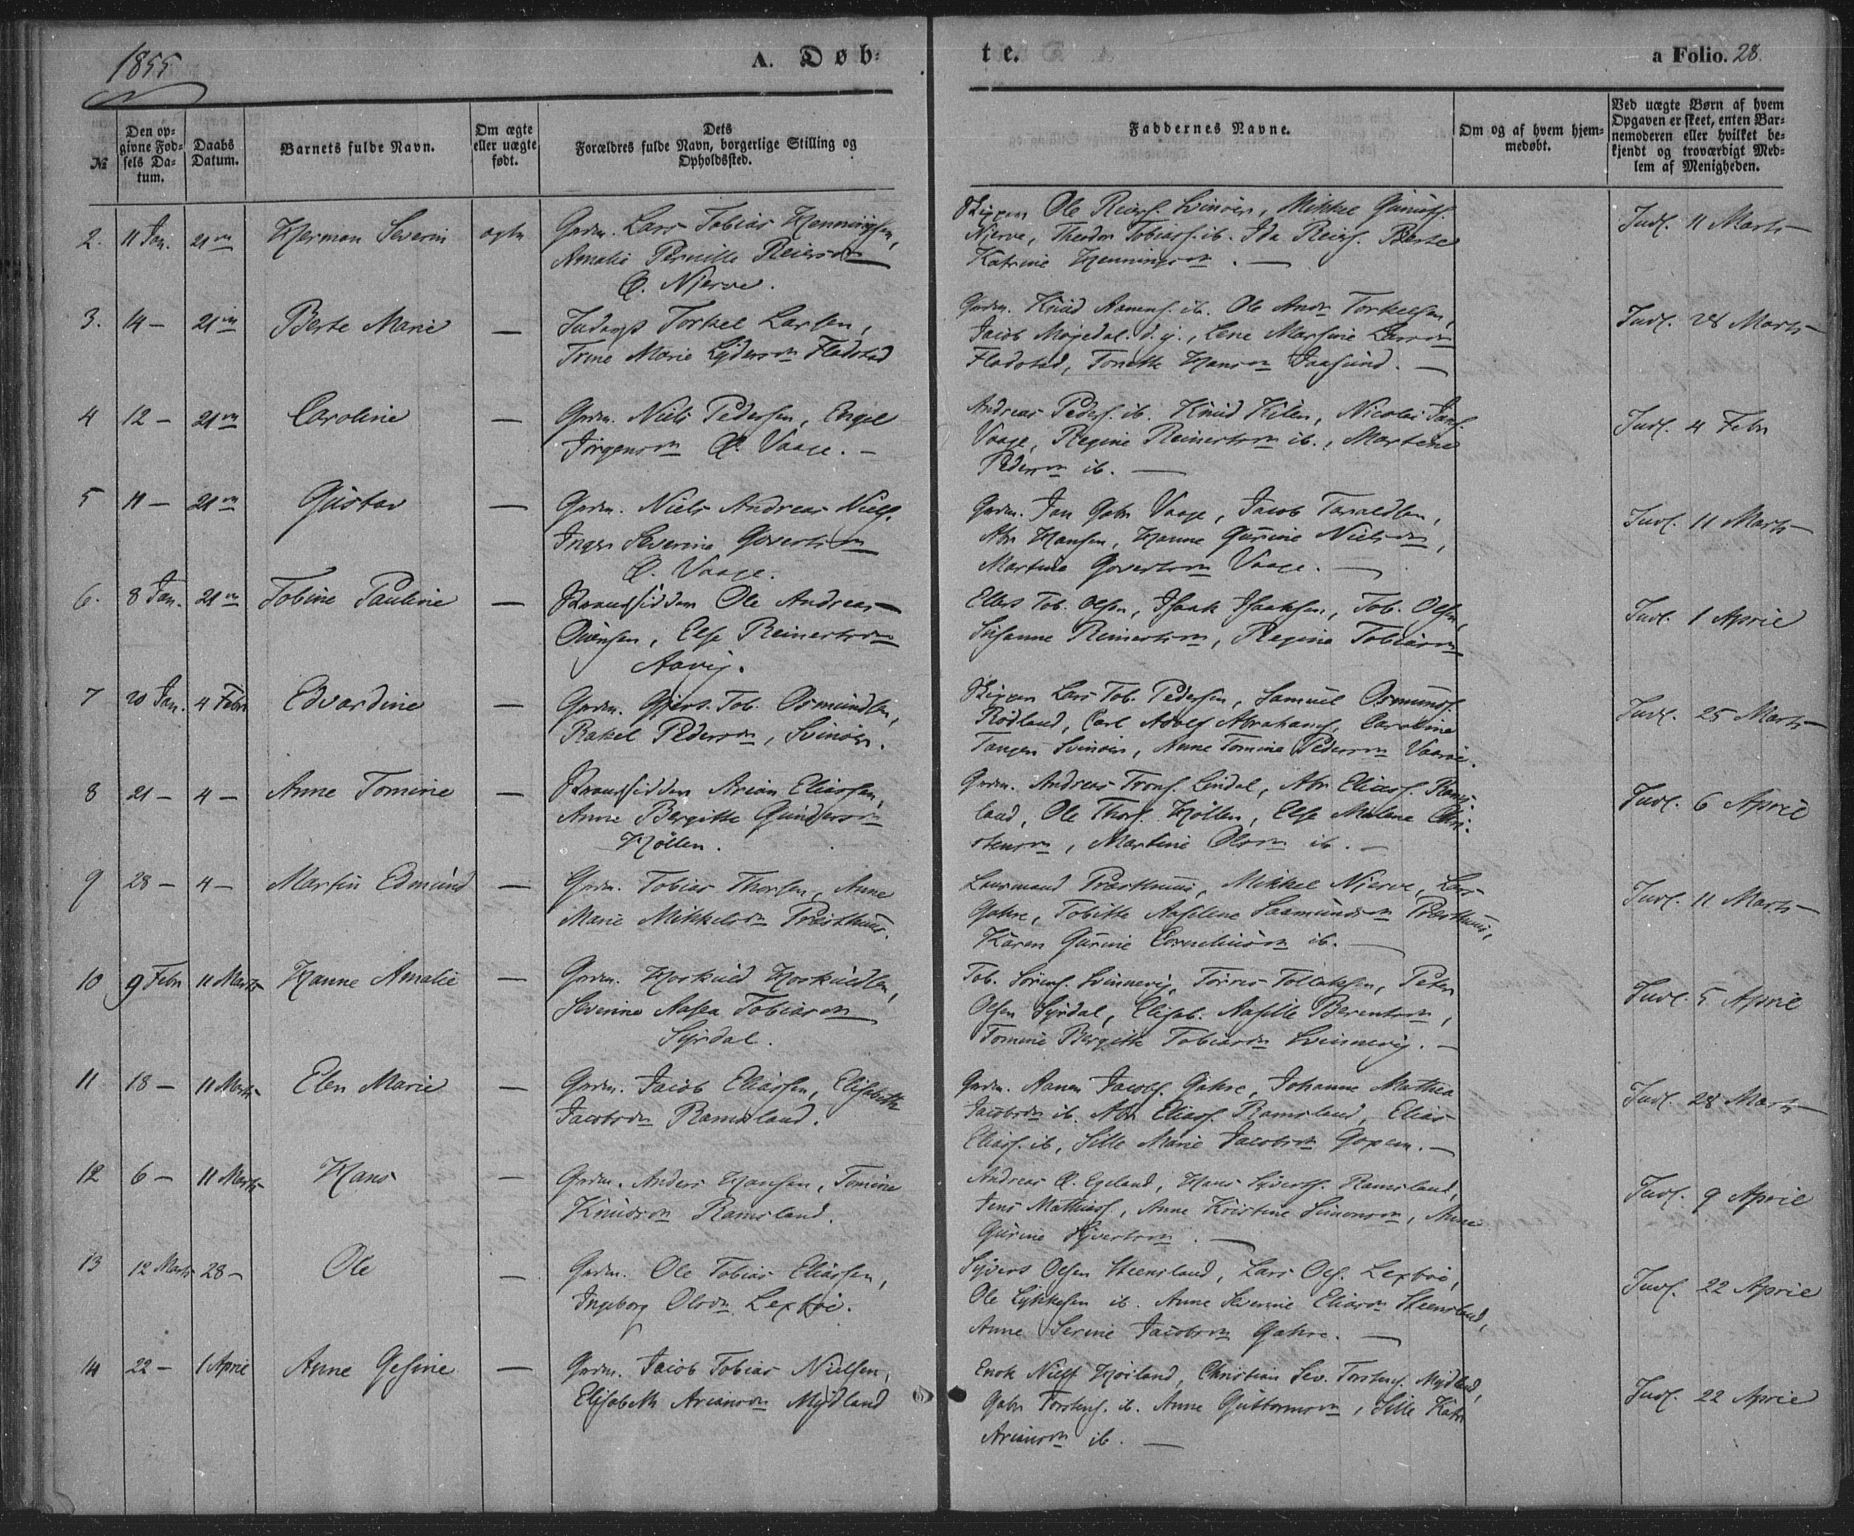 1855
A. Døb-
te.
a Folio. 28.
№
Den op-
givne Fød-
sels Da-
tum.
Daabs
Datum.
Barnets fulde Navn.
Om ægte
eller uægte
født.
Dets
Forældres fulde Navn, borgerlige Stilling og
Opholdssted.
Faddernes Navne.
Om og af hvem hjem-
medøbt.
Ved uægte Børn af hvem
Opgaven er skeet, enten Bar-
nemoderen eller hvilket be-
kjendt og troværdigt Med-
lem af Menigheden.
2. 11 Jan. 21 Herman Severin ægte Grdm. Lars Tobias Henningsen,
Amalie Pernille Reiersdn
Ø. Njerve.
Skipper Ole Reiers. Svinøer, Mikkel
Njerve, Theodor Tobias. ib. Ida Reiers. Berte
Katrine Hennings. —
Indf. 11 Marts
3. 14 — 21 Berte Marie — Torkel Larsen,
Trine Marie Flødstad
Grdm. Knud ib. Ole Andr. Torkelsen,
Jacob Møgedal. d. y., Lene Martine
Flødstad, Tonette Jaasund. —
Indf. 28 Marts
4 12 — 21 Caroline — Grdm. Niels Pedersen, Engel
Jørgensdn Ø. Vaage. —
Andreas Peders. ib. Knud Kilen, Nicolai
Vaage, Regine Reinertsdn ib., Martine
Pedersdn ib. —
Indf. 4 Febr
5 11 — 21 Gustav — Grdm. Niels Andreas Niels.
Inger Severine Govertsdn
Ø. Vaage.
Grdm. Jan Gabr. Vaage, Jacob Taraldsen,
Abr Hansen, Hanne Gurine Nielsdn,
Martine Govertsdn Vaage. —
Indf. 11 Marts
6. 8 Jan. 21 Tobine Pauline — Strandsidder Ole Andreas
Ouensen, Else Reinertsdn
Aavig.
Ellert Tob. Olsen, Isaak Isaaksen, Tob. Olsen,
Susanne Reinertsdn, Regine Tobiasdn
Indf. 1 April
7 20 Jan. 4 Febr Edvardine — Grdm. Tob. Osmundsen,
Rakel Pedersdn, Svinøer.
Skipper Lars Tob. Pedersen, Samuel Osmunds.
Rødland, Carl Adolf Abrahams., Caroline
Tangen Svinøer, Anne Tomine Pedersdn
Indf. 25 Marts
8 21 — 4 — Anne Tomine — Strandsidder Arian Eliassen,
Anne Bergitte Gundersdn
Høllen.
Grdm. Andreas Lindal, Abr. Elias. Rams-
land, Ole Thors. Høllen, Else Malena Chri-
stensdn, Martine Olsdn ib. —
Indf. 6 April
9 28 — 4 — Martin Edmund — Grdm. Tobias Thorsen, Anne
Marie Mikkelsdn Præsthuus.
Lensmand Præsthuus, Mikkel Njerve, Lars
Gahre, Tobitte Aaselene Saamundsdn Præsthuus,
Karen Gurine Corneliusdn ib. —
Indf. 11 Marts
10 9 Febr 11 Marts Hanne Amalie — Grdm. Hoskuld Hoskuldsen,
Severine Aasea Tobiasdn
Syrdal.
Tob. Sørens. Svinnevig, Tørres Tollaksen, Peter
Olsen Syrdal, Elisab. Aaselle Berentsdn,
Tomine Bergitte Tobiasdn Svinnevig. —
Indf. 5 April
11 18 — 11 Marts Elen Marie — Grdm. Jacob Eliassen, Elisabeth
Jacobsdn Ramsland.
Grdm. Aanen Jacobs. Gahre, Johanne Mathea
Jacobsdn ib. Abr. Elias. Ramsland, Elias
Elias. ib, Sille Marie Jacobsdn —
Indf. 28 Marts
12 6 — 11 Marts Hans — Grdm. Anders Hansen, Tomine
Knudsdn Ramsland.
Andreas Ø. Egeland, Hans Syverts. Ramsland,
Jens Mathias., Anne Kristine Simonsdn, Anne
Gurine Syvertsdn. —
Indf. 9 April
13 12 Marts 28 — Ole — Grdm. Ole Tobias Eliassen,
Ingeborg Olsdn Lexboe.
Syvert Olsen Steensland, Lars Ols. Lexboe,
Ole Lykkesen ib. Anne Severine Eliasdn Steensland,
Anne Serine Jacobsdn Gahre. —
Indf. 22 April
14 22 — 1 April Anne Gesine — Grdm. Jacob Tobias Nielsen,
Elisabeth Ariansdn Mydland
Enok Niels. Høiland, Christian Sev. Torstens. Mydland,
Gabr Torstens. ib. Anne Guttormsdn, Sille Katr
Ariansdn ib. —
Indf. 22 April